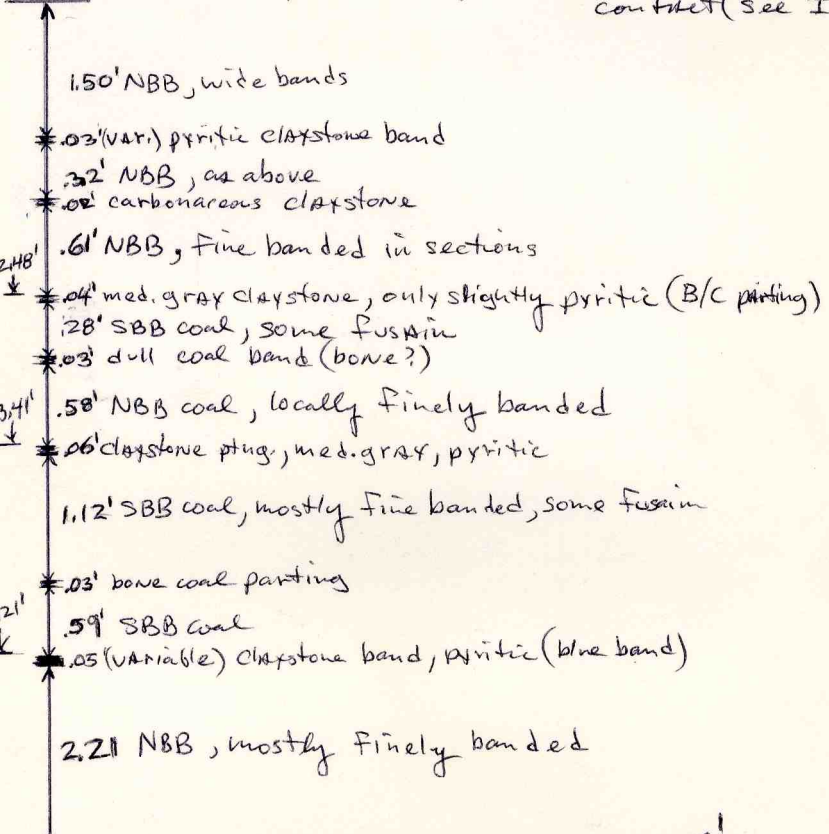 contact (see I
1.50' NBB, wide bands
.03' (vAr.) pyritic clAystone band
.32' NBB, as above
.02' carbonareous clAystone
.61' NBB, fine banded in sections
2.48'
.04' med. grAy clAystone, only slightly pyritic (B/C pArting)
.28' SBB coal, some fusAin
.03' dull coal band (bone?)
3.41'
.58' NBB coal, locally finely banded
.06' clAystone ptng., med. grAy, pyritic
1.12' SBB coal, mostly fine banded, some fusain
.03' bone coal parting
21'
.59' SBB coal
.05 (vAriable) clAystone band, pyritic (blue band)
2.21 NBB, mostly finely banded